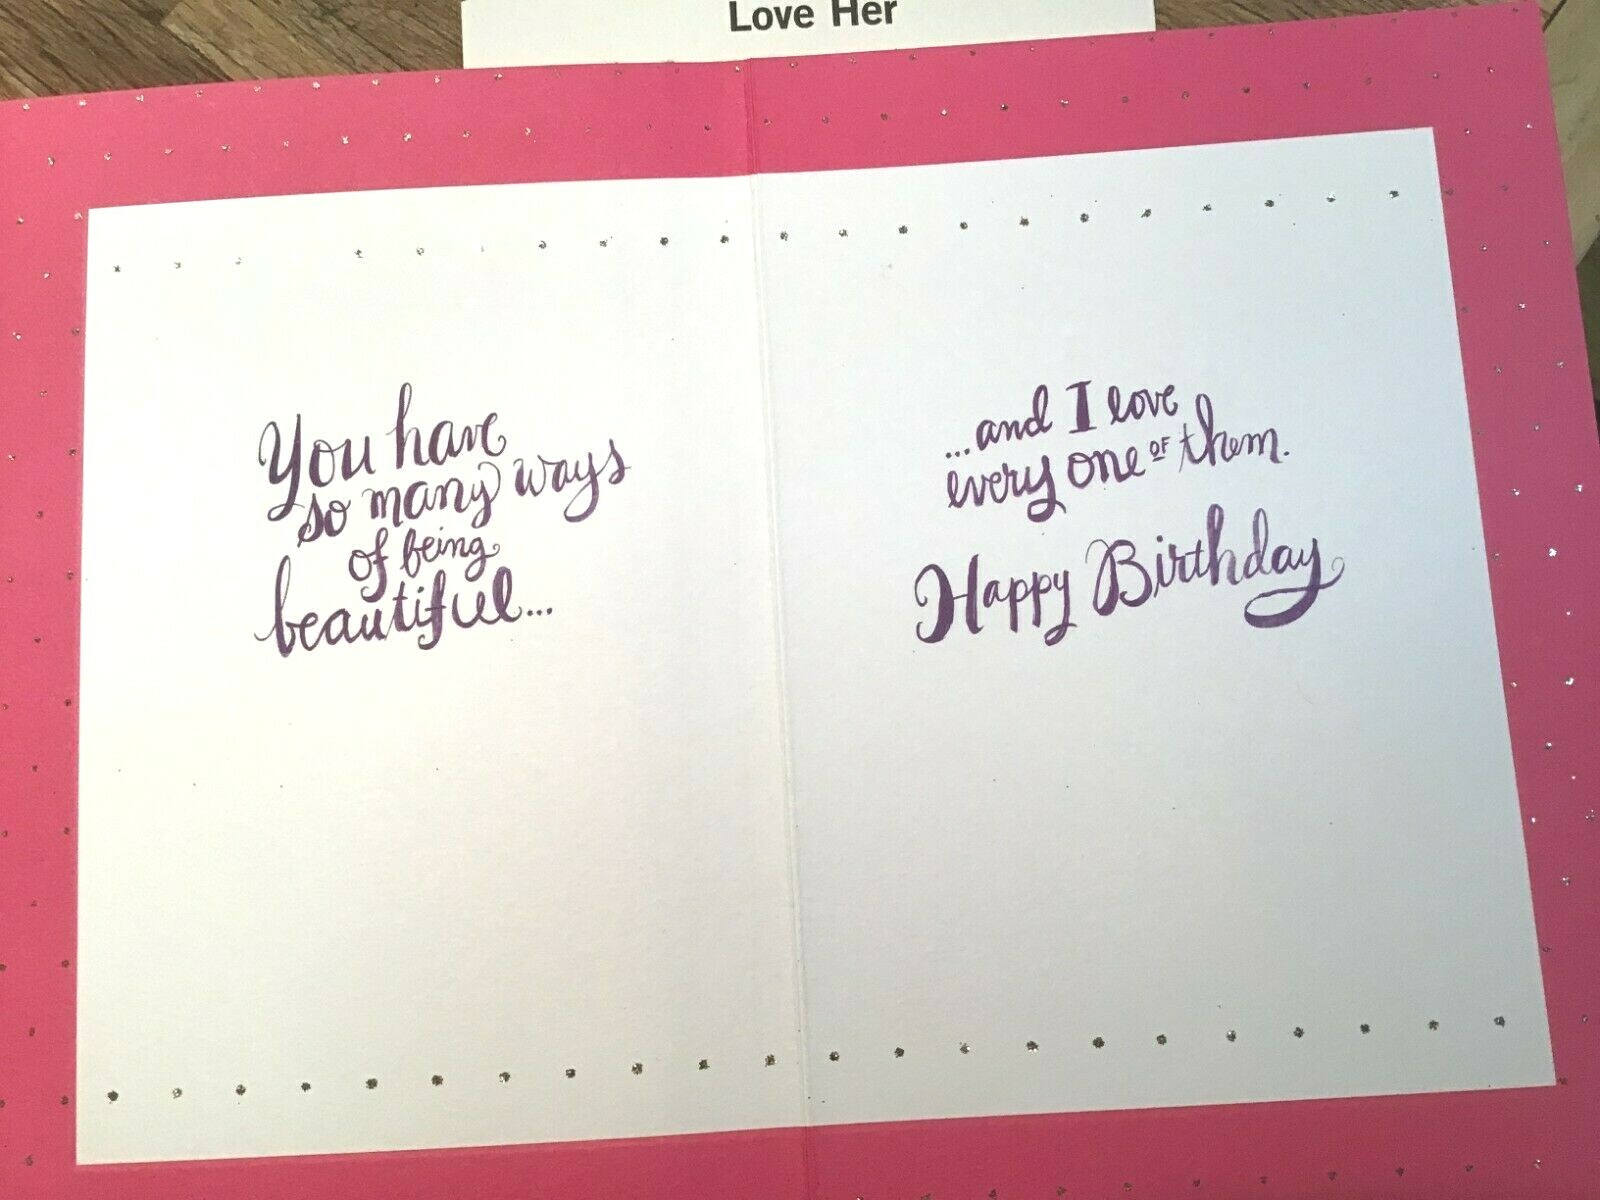 Love Her
You have
so many ways
of being
beautiful...
...and I love
every one OF them.
Happy Birthday